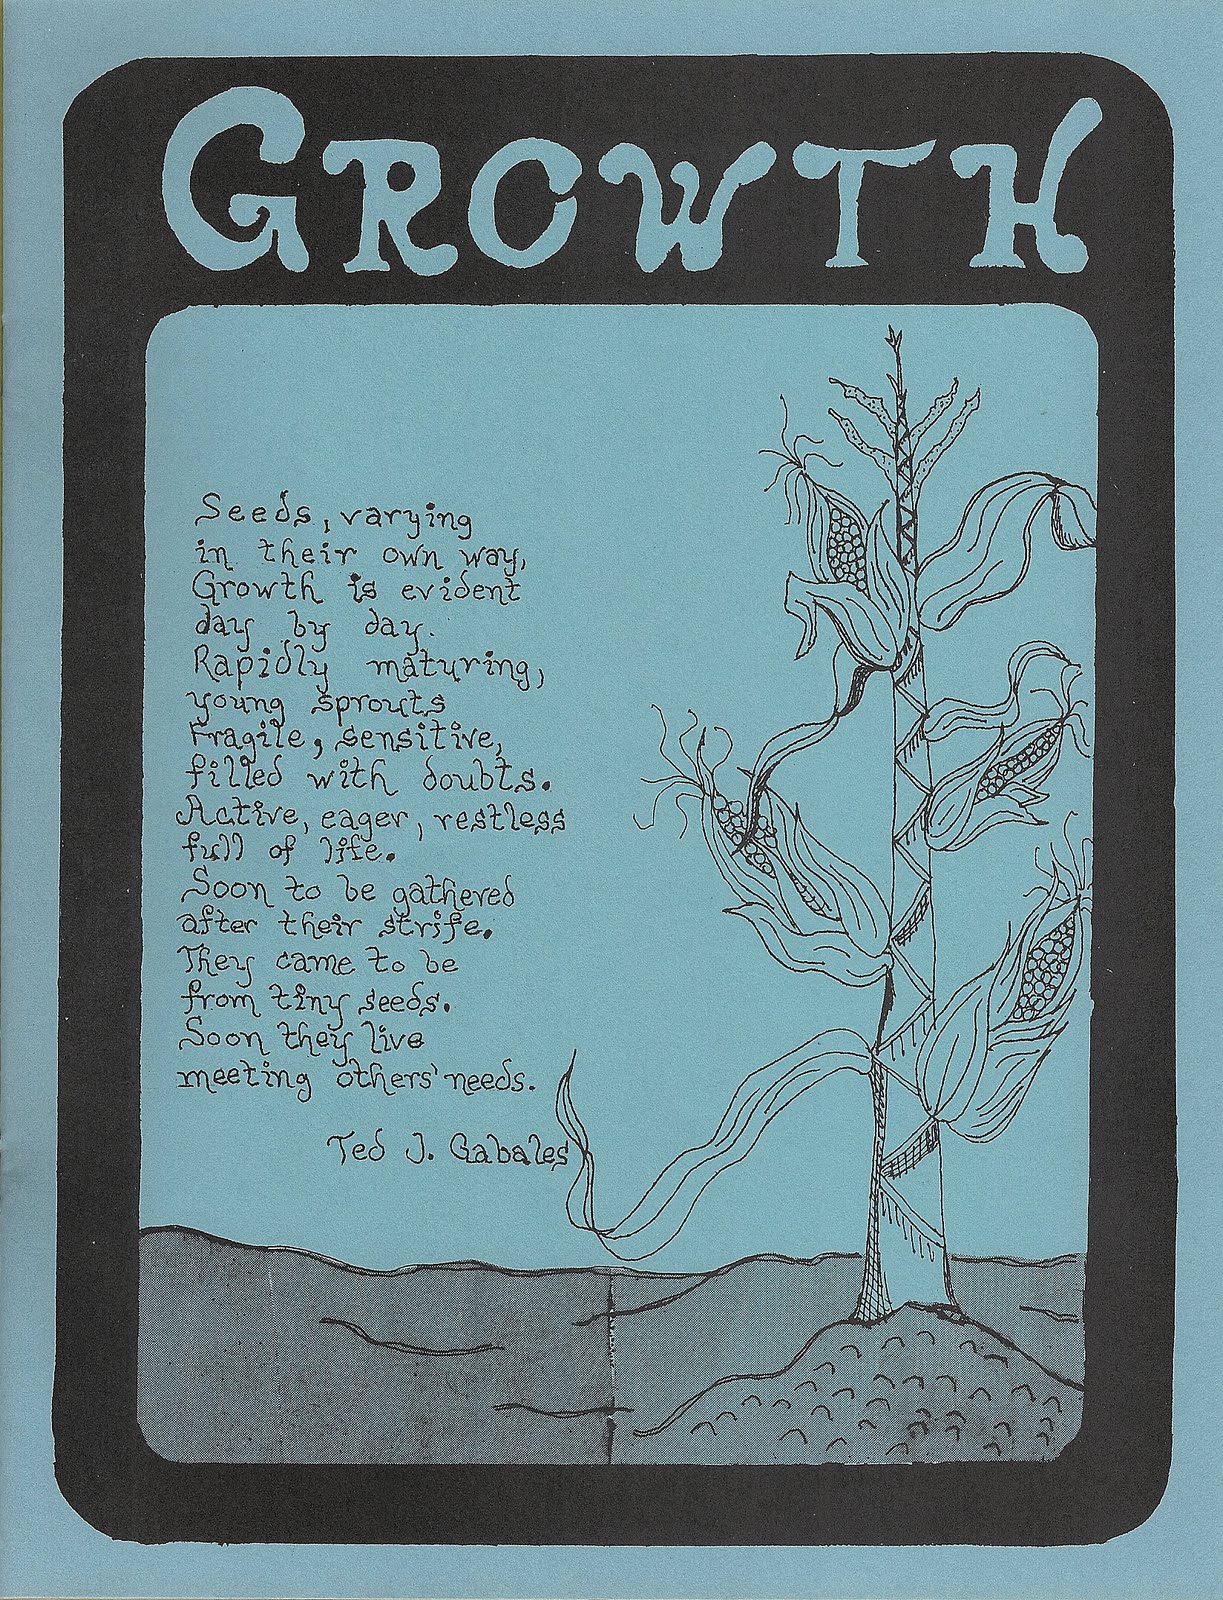 GROWTH
Seeds, varying
in their own way,
Growth is evident
day by day.
Rapidly maturing,
young sprouts
Fragile, sensitive,
filled with doubts.
Active, eager, restless
full of life.
Soon to be gathered
after their strife.
They came to be
from tiny seeds.
Soon they live
meeting others' needs.
Ted J. Gabales